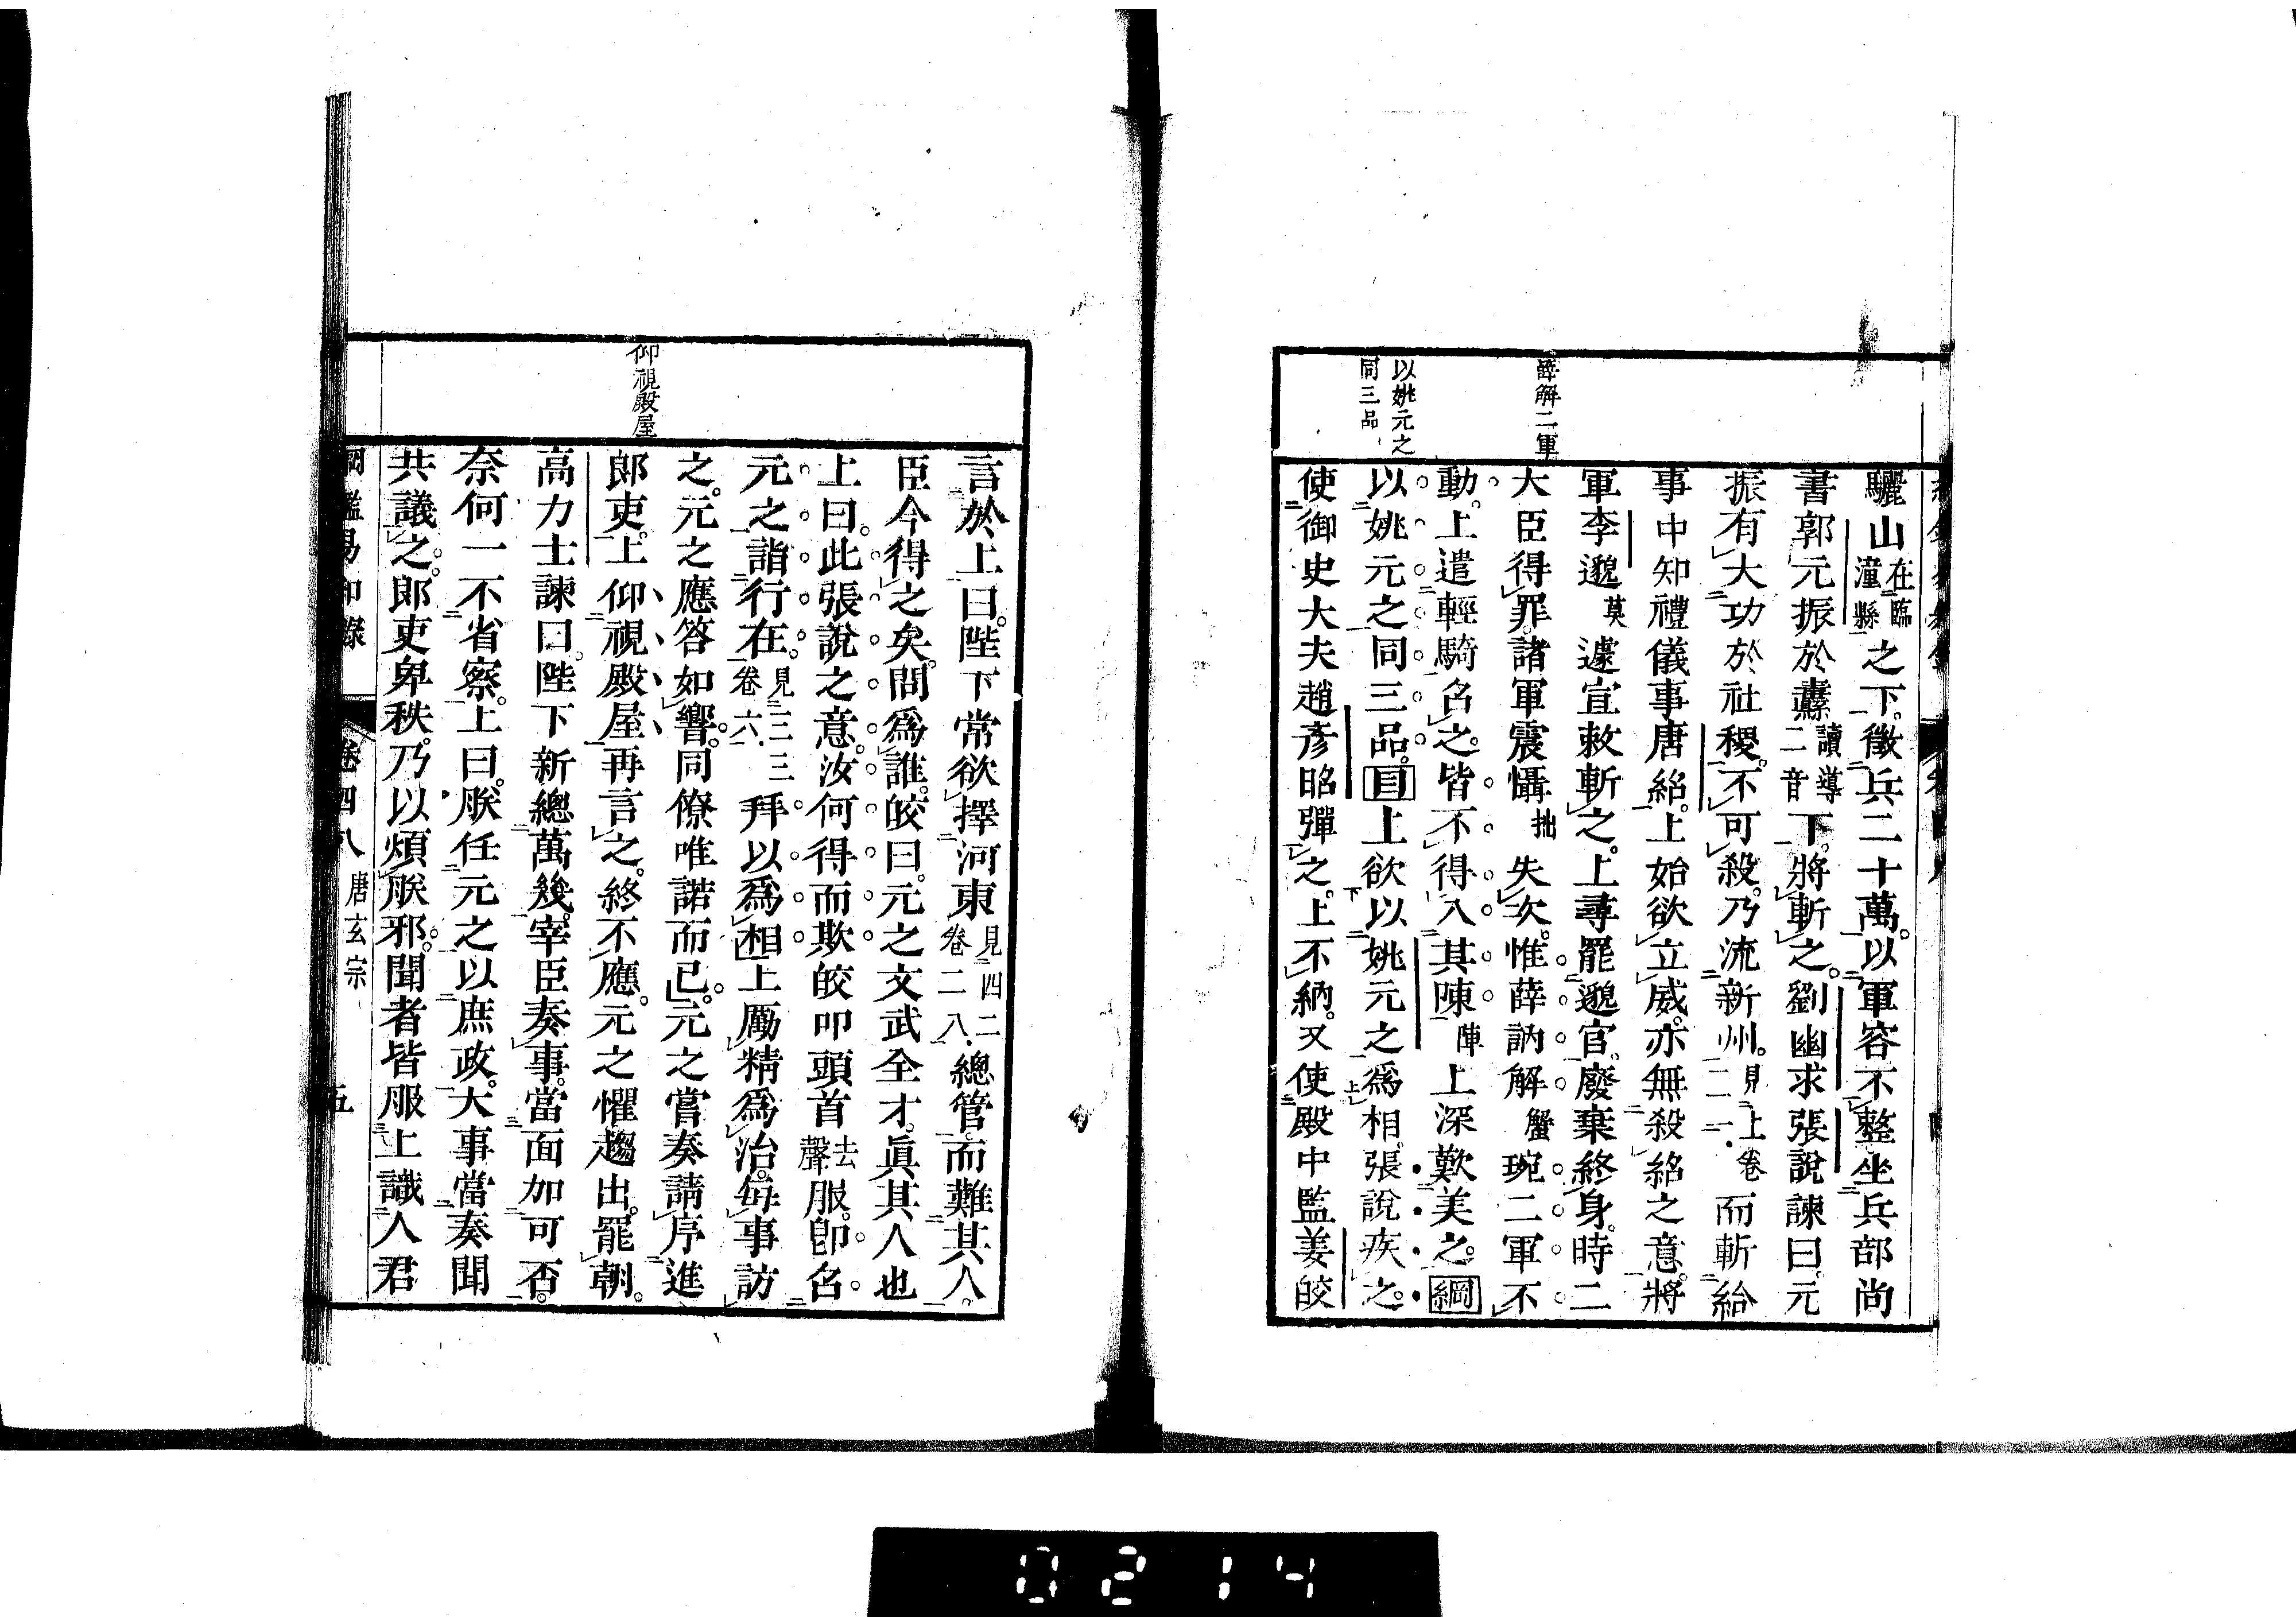 薛解二軍
以姚元之
同三品
驪山在臨潼縣之下。徵兵二十萬。以軍容不整。坐兵部尚
書郭元振於纛讀導二音下。將斬之。劉幽求張說諫曰。元
振有大功於社稷。不可殺。乃流新州。見上卷二一而斬給
事中知禮儀事唐紹。上始欲立威。亦無殺紹之意。將
軍李邈莫遽宣敕斬之。上尋罷邈官。廢棄終身。時二
大臣得罪。諸軍震懾拙失次。惟薛訥解蟹琬二軍不
動。上遣輕騎召之。皆不得入其陳陣上深歎美之。綱
以姚元之同三品。目上欲以姚元之爲相。張說疾之。
使御史大夫趙彥昭彈之。上不納。又使殿中監姜皎
仰視殿屋
言於上曰。陛下常欲擇河東見四二卷二八總管。而難其人。
臣今得之矣。問爲誰。皎曰。元之文武全才。眞其人也
上曰。此張說之意。汝何得而欺皎叩頭首去聲服。卽召
元之詣行在。見三三卷六拜以爲相上勵精爲治。每事訪
之。元之應答如響。同僚唯諾而已。元之嘗奏請序進
郎吏。上仰視殿屋再言之。終不應。元之懼趨出。罷朝。
高力士諫曰。陛下新總萬幾。宰臣奏事。當面加可否。
奈何一不省察。上曰。朕任元之以庶政。大事當奏聞
共議之。郎吏卑秩。乃以煩朕邪。聞者皆服上識人君
綱鑑易知錄 卷四八 唐玄宗 五